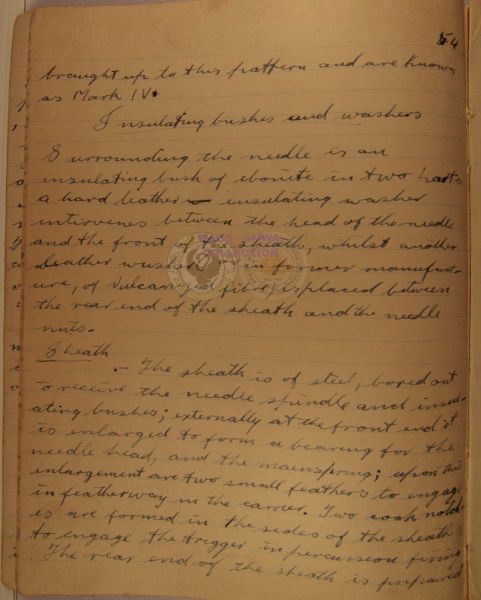 54
brought up to this pattern and are known
as Mark IV.
Insulating bushes and washers
Surrounding the needle is an
insulating bush of ebonite in two parts
a hard leather insulating washer
intervenes between the head of the needle
and the front of the sheath, whilst another
leather washer, or in former manufact-
ure, of vulcanized fibre is placed between
the rear end of the sheath and the needle
nuts.
Sheath
:- The sheath is of steel, bored out
to receive the needle spindle and insul-
ating bushes; externally at the front end it
is enlarged to form a bearing for the
needle head, and the mainspring; upon this
enlargement are two small feathers to engage
in featherway in the carrier. Two cock notch-
es are formed in the sides of the sheath
to engage the trigger in percussion firing
The rear end of the sheath is prepared
COLLECTION